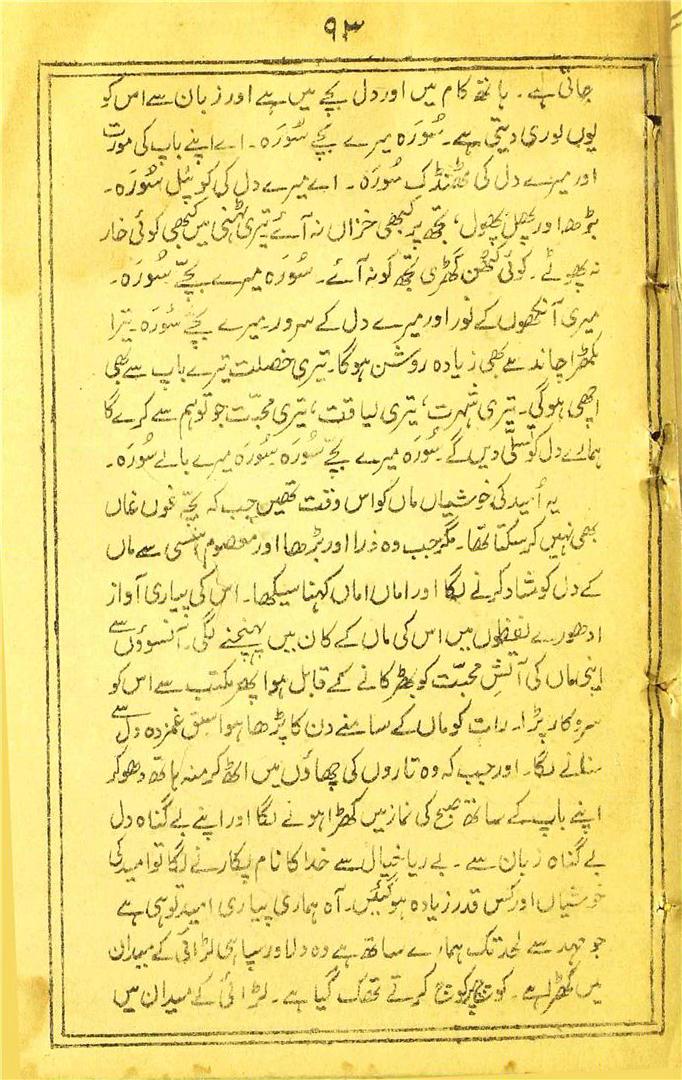 ۹۳
جاتی ہے۔ ہاتھ کام میں اور دل بچے میں ہے اور زبان سے اس کو
یوں لوری دیتی ہے۔ سُورَہ میرے بچے سُورَہ۔ اے اپنے باپ کی مورت
اور میرے دل کی ٹھنڈک سُورَہ۔ اے میرے دل کی کونپل سُورَہ۔
بڑھ اور پھل پھول، تجھ پر کبھی خزاں نہ آئے تیری ٹہنی میں کبھی کوئی خار
نہ پھوٹے۔ کوئی کٹھن گھڑی تجھ کو نہ آئے۔ سُورَہ میرے بچے سُورَہ۔
میری آنکھوں کے نور اور میرے دل کے سرور میرے بچے سُورَہ۔ تیرا
مکھڑا چاند سے بھی زیادہ روشن ہوگا۔ تیری خصلت تیرے باپ سے بھی
اچھی ہوگی۔ تیری شہرت، تیری لیاقت، تیری محبّت جو تو ہم سے کرے گا
ہمارے دل کو تسلّی دیں گے۔ سُورَہ میرے بچّے سُورَہ سُورَہ میرے بالے سُورَہ۔
یہ اُمید کی خوشیاں ماں کو اس وقت تھیں جب کہ بچّہ غوں غاں
بھی نہیں کر سکتا تھا۔ مگر جب وہ ذرا اور بڑھا اور معصوم ہنسی سے ماں
کے دل کو شاد کرنے لگا اور اماں اماں کہنا سیکھا۔ اس کی پیاری آواز
ادھورے لفظوں میں اس کی ماں کے کان میں پہنچنے لگی۔ آنسوؤں سے
اپنی ماں کی آتشِ محبّت کو بھڑکانے کے قابل ہوا پھر مکتب سے اس کو
سروکار پڑا۔ رات کو ماں کے سامنے دن کا پڑھا ہوا سبق غمزدہ دل سے
سنانے لگا۔ اور جب کہ وہ تاروں کی چھاؤں میں اٹھ کر منہ ہاتھ دھو کر
اپنے باپ کے ساتھ صبح کی نماز میں کھڑا ہونے لگا اور اپنے بے گناہ دل
بے گناہ زبان سے۔ بے ریا خیال سے خدا کا نام پکارنے لگا تو امید کی
خوشیاں اور کس قدر زیادہ ہوگئیں۔ آہ ہماری پیاری امید تو ہی ہے
جو مہد سے لحد تک ہمارے ساتھ ہے وہ دلاور سپاہی لڑائی کے میدان
میں کھڑا ہے۔ کوچ پر کوچ کرتے تھک گیا ہے۔ لڑائی کے میدان میں